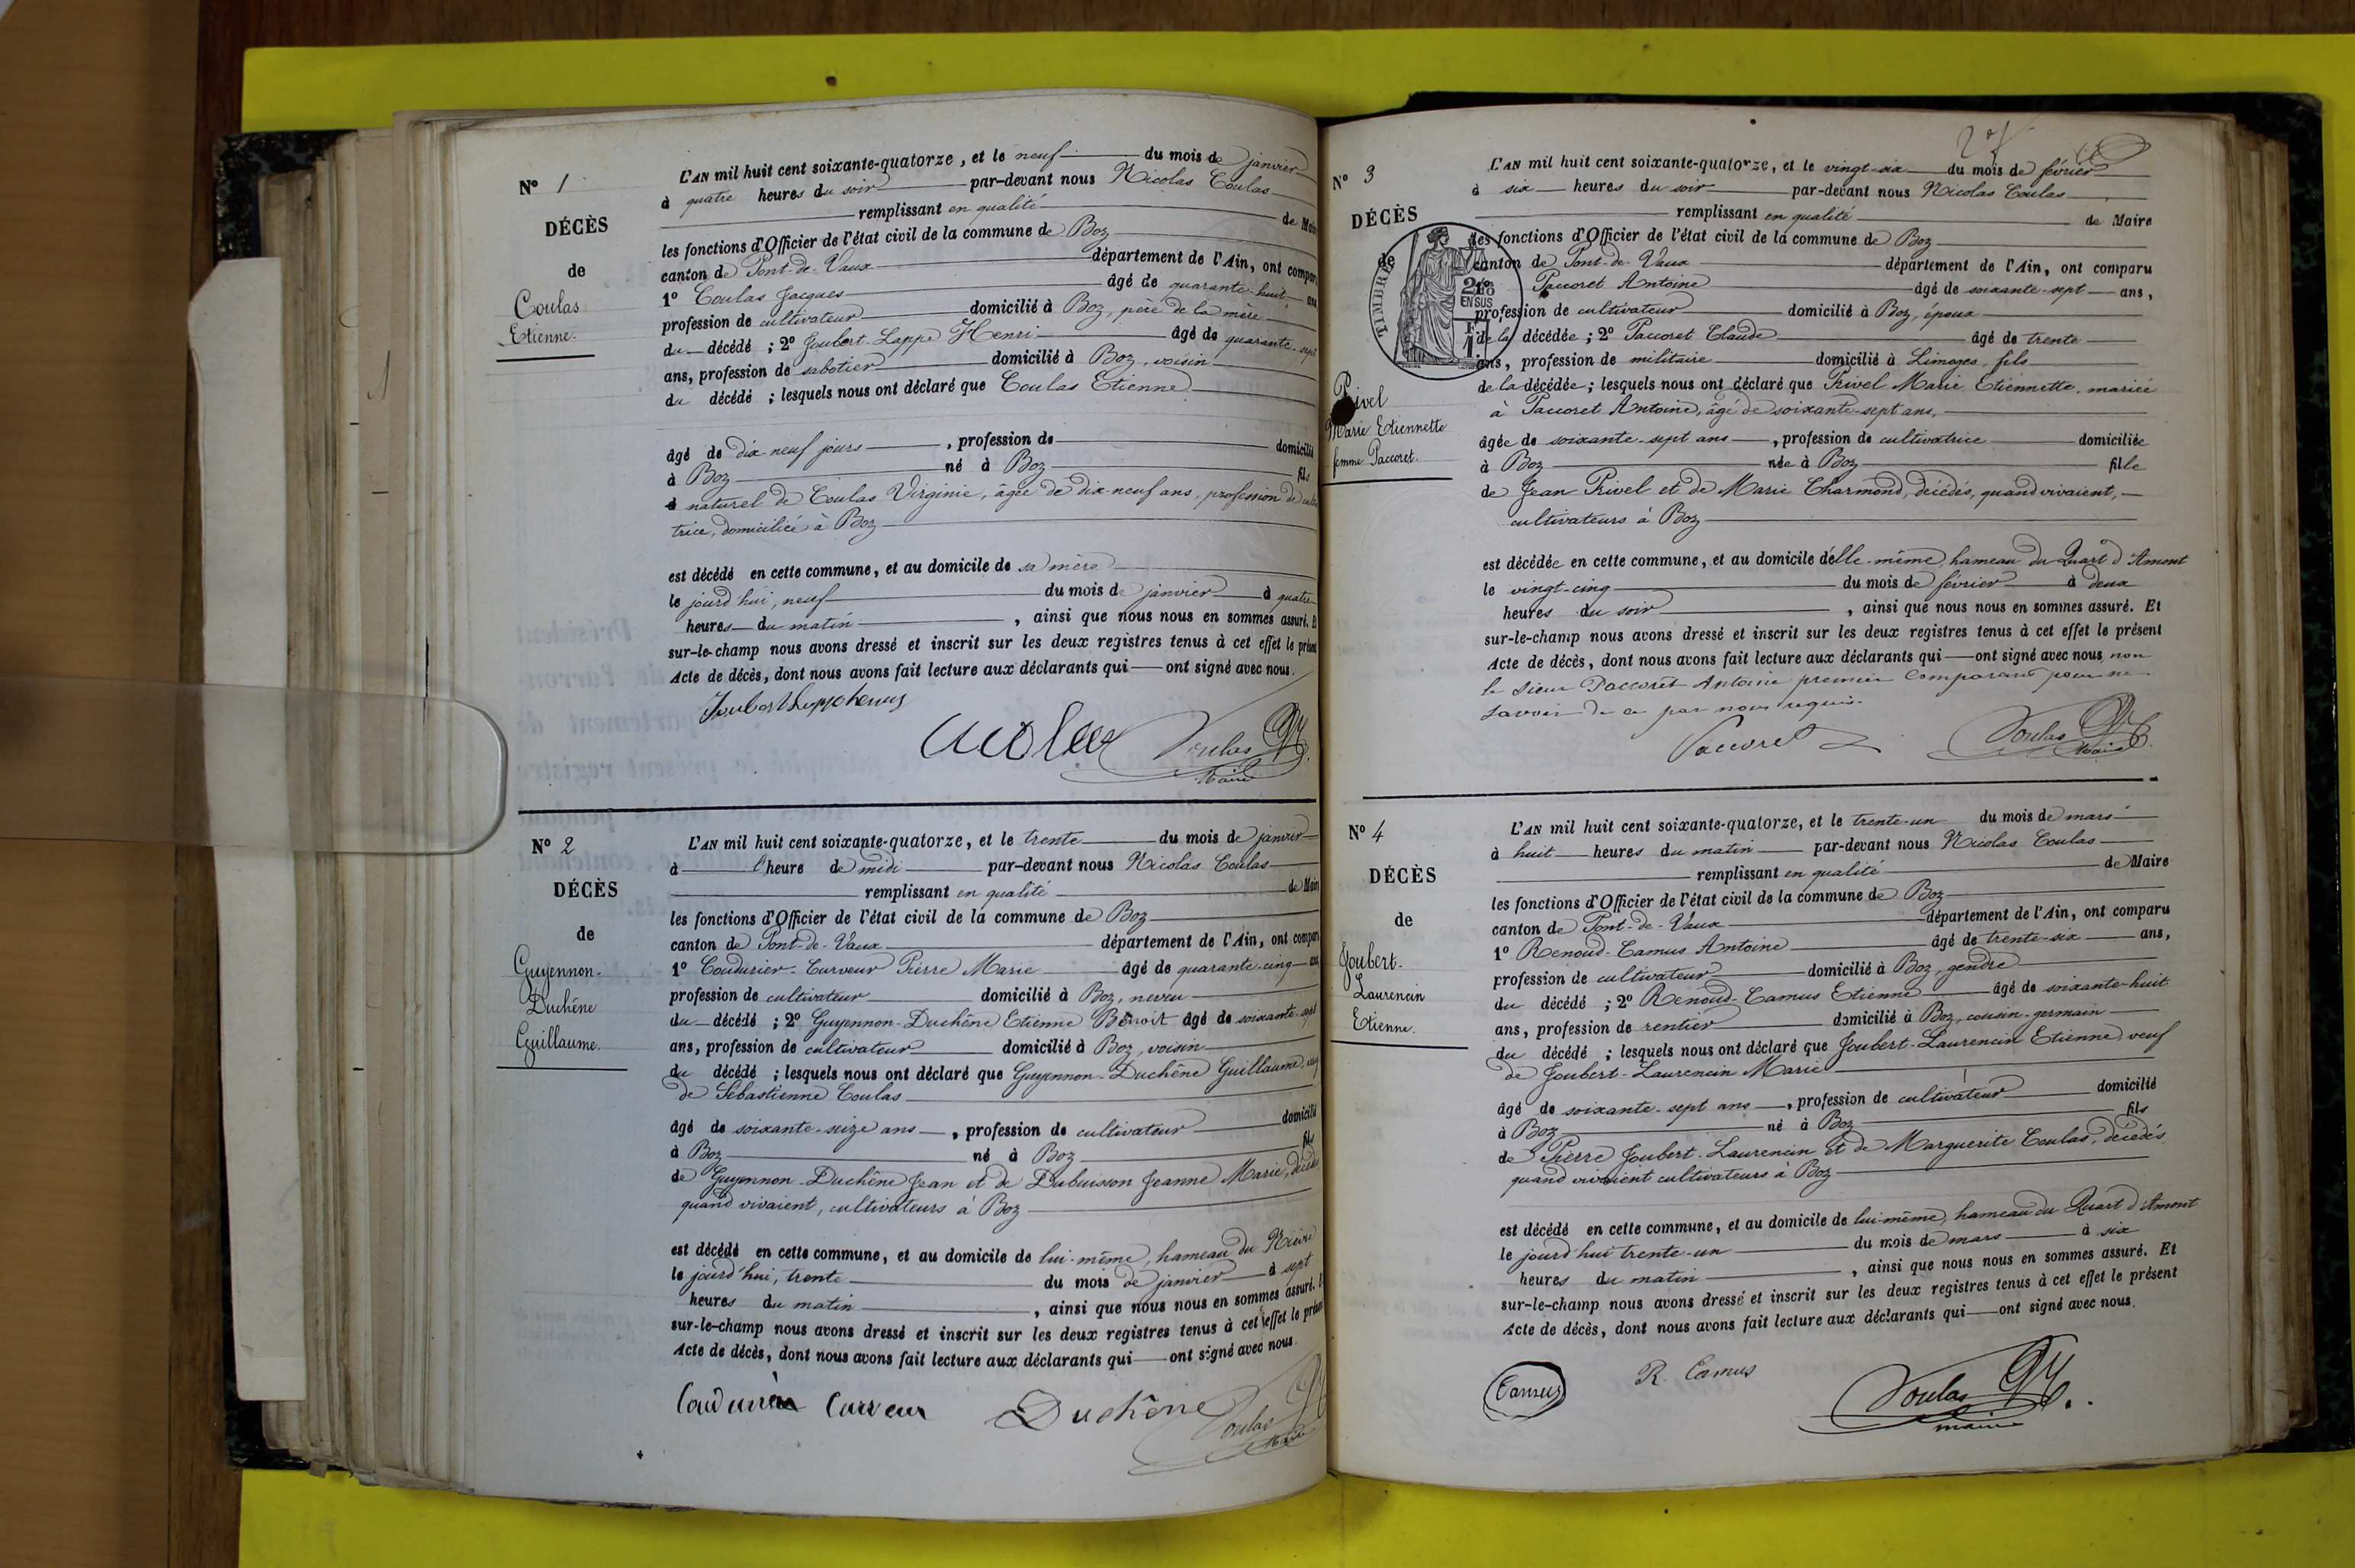 N° 1
DÉCÈS
de
Coulas
Etienne.
L'AN mil huit cent soixante-quatorze, et le neuf du mois de janvier
à quatre heures du soir par-devant nous Nicolas Coulas
remplissant en qualité de Mair
les fonctions d'Officier de l'état civil de la commune de Boz
canton de Pont-de-Vaux département de l'Ain, ont compar
1° Coulas Jacques âgé de quarante-huit ans
profession de cultivateur domicilié à Boz, père de la mère
du décédé ; 2° Joubert-Lappe Henri âgé de quarante-sept
ans, profession de sabotier domicilié à Boz, voisin
du décédé ; lesquels nous ont déclaré que Coulas Etienne
âgé de dix-neuf jours, profession de domicilié
à Boz né à Boz fils
naturel de Coulas Virginie, âgée de dix-neuf ans, profession de culti
trice, domiciliée à Boz
est décédé en cette commune, et au domicile de sa mère
le jourd'hui, neuf du mois de janvier à quatre
heures du matin, ainsi que nous nous en sommes assuré. E
sur-le-champ nous avons dressé et inscrit sur les deux registres tenus à cet effet le présent
Acte de décès, dont nous avons fait lecture aux déclarants qui ont signé avec nous.
Coulas
Maire
N° 2
DÉCÈS
de
Guyennon-
Duchêne
Guillaume.
L'AN mil huit cent soixante-quatorze, et le trente du mois de janvier
à l'heure de midi par-devant nous Nicolas Coulas
remplissant en qualité de Mair
les fonctions d'Officier de l'état civil de la commune de Boz
canton de Pont-de-Vaux département de l'Ain, ont compar
1° Coudurier-Curveur Pierre Marie âgé de quarante-cinq ans
profession de cultivateur domicilié à Boz, neveu
du décédé ; 2° Guyennon-Duchêne Etienne Benoit âgé de soixante-sept
ans, profession de cultivateur domicilié à Boz, voisin
du décédé ; lesquels nous ont déclaré que Guyennon-Duchêne Guillaume, veuf
de Sébastienne Coulas
âgé de soixante-seize ans, profession de cultivateur domicilié
à Boz né à Boz fils
de Guyennon-Duchêne Jean et de Dubuisson Jeanne Marie, décédés
quand vivaient, cultivateurs à Boz
est décédé en cette commune, et au domicile de lui-même, hameau du
le jourd'hui, trente du mois de janvier à sept
heures du matin, ainsi que nous nous en sommes assuré. E
sur-le-champ nous avons dressé et inscrit sur les deux registres tenus à cet effet le présen
Acte de décès, dont nous avons fait lecture aux déclarants qui ont signé avec nous.
Coudurier Curveur Duchêne Coulas
Maire
N° 3
DÉCÈS
de
TIMBRE
2/10
EN SUS
Privel
Marie Etiennette
femme Paccoret.
L'AN mil huit cent soixante-quatorze, et le vingt-six du mois de février
à six heures du soir par-devant nous Nicolas Coulas
remplissant en qualité de Maire
les fonctions d'Officier de l'état civil de la commune de Boz
canton de Pont-de-Vaux département de l'Ain, ont comparu
Paccoret Antoine âgé de soixante-sept ans,
profession de cultivateur domicilié à Boz, époux
de la décédée ; 2° Paccoret Claude âgé de trente
ans, profession de militaire domicilié à Limoges, fils
de la décédée ; lesquels nous ont déclaré que Privel Marie Etiennette, mariée
à Paccoret Antoine, âgé de soixante-sept ans,
âgée de soixante-sept ans, profession de cultivatrice domiciliée
à Boz née à Boz fille
de Jean Privel et de Marie Charmond, décédés, quand vivaient,
cultivateurs à Boz
est décédée en cette commune, et au domicile d'elle-même, hameau du Quart d'Amont
le vingt-cinq du mois de février à deux
heures du soir, ainsi que nous nous en sommes assuré. Et
sur-le-champ nous avons dressé et inscrit sur les deux registres tenus à cet effet le présent
Acte de décès, dont nous avons fait lecture aux déclarants qui ont signé avec nous, non
le sieur Paccoret Antoine premier comparant pour ne
savoir de ce par nous requis.
Paccoret Coulas
Maire
N° 4
DÉCÈS
de
Joubert-
Laurencin
Etienne.
L'AN mil huit cent soixante-quatorze, et le trente-un du mois de mars
à huit heures du matin par-devant nous Nicolas Coulas
remplissant en qualité de Maire
les fonctions d'Officier de l'état civil de la commune de Boz
canton de Pont-de-Vaux département de l'Ain, ont comparu
1° Renoud-Camus Antoine âgé de trente-six ans,
profession de cultivateur domicilié à Boz, gendre
du décédé ; 2° Renoud-Camus Etienne âgé de soixante-huit
ans, profession de rentier domicilié à Boz, cousin-germain
du décédé ; lesquels nous ont déclaré que Joubert-Laurencin Etienne, veuf
de Joubert-Laurencin Marie
âgé de soixante-sept ans, profession de cultivateur domicilié
à Boz né à Boz fils
de Pierre Joubert-Laurencin et de Marguerite Coulas, décédés
quand vivaient cultivateurs à Boz
est décédé en cette commune, et au domicile de lui-même, hameau du Quart d'Amont
le jourd'hui trente-un du mois de mars à six
heures du matin, ainsi que nous nous en sommes assuré. Et
sur-le-champ nous avons dressé et inscrit sur les deux registres tenus à cet effet le présent
Acte de décès, dont nous avons fait lecture aux déclarants qui ont signé avec nous.
Camus R. Camus Coulas
maire